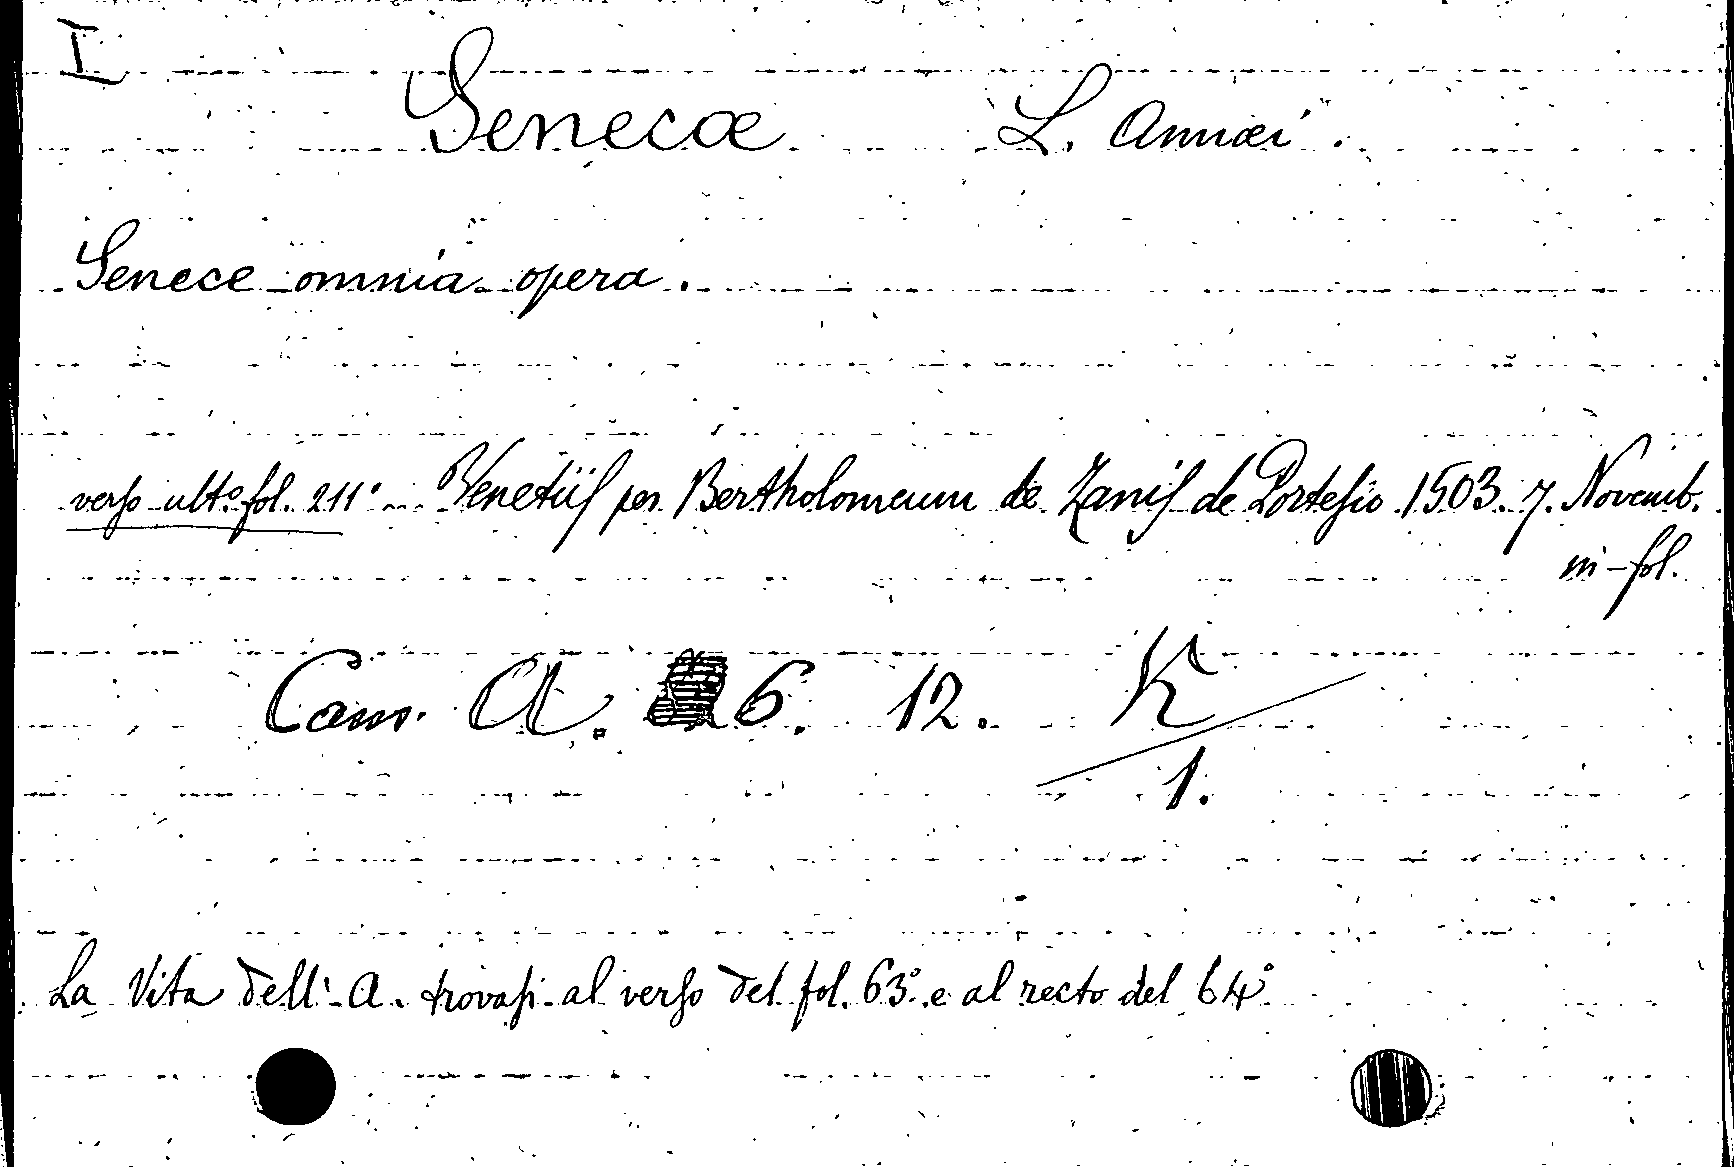 I
Senecæ L. Annæi.
Senece omnia opera.
verso ult.º fol. 211º Venetiis per Bertholomeum de Zanis de Portesio 1503. 7. Novemb.
in-fol.
Cam. A. 6. 12. K
1.
La Vita dell' A. trovasi al verso del fol. 63.º e al recto del 64º